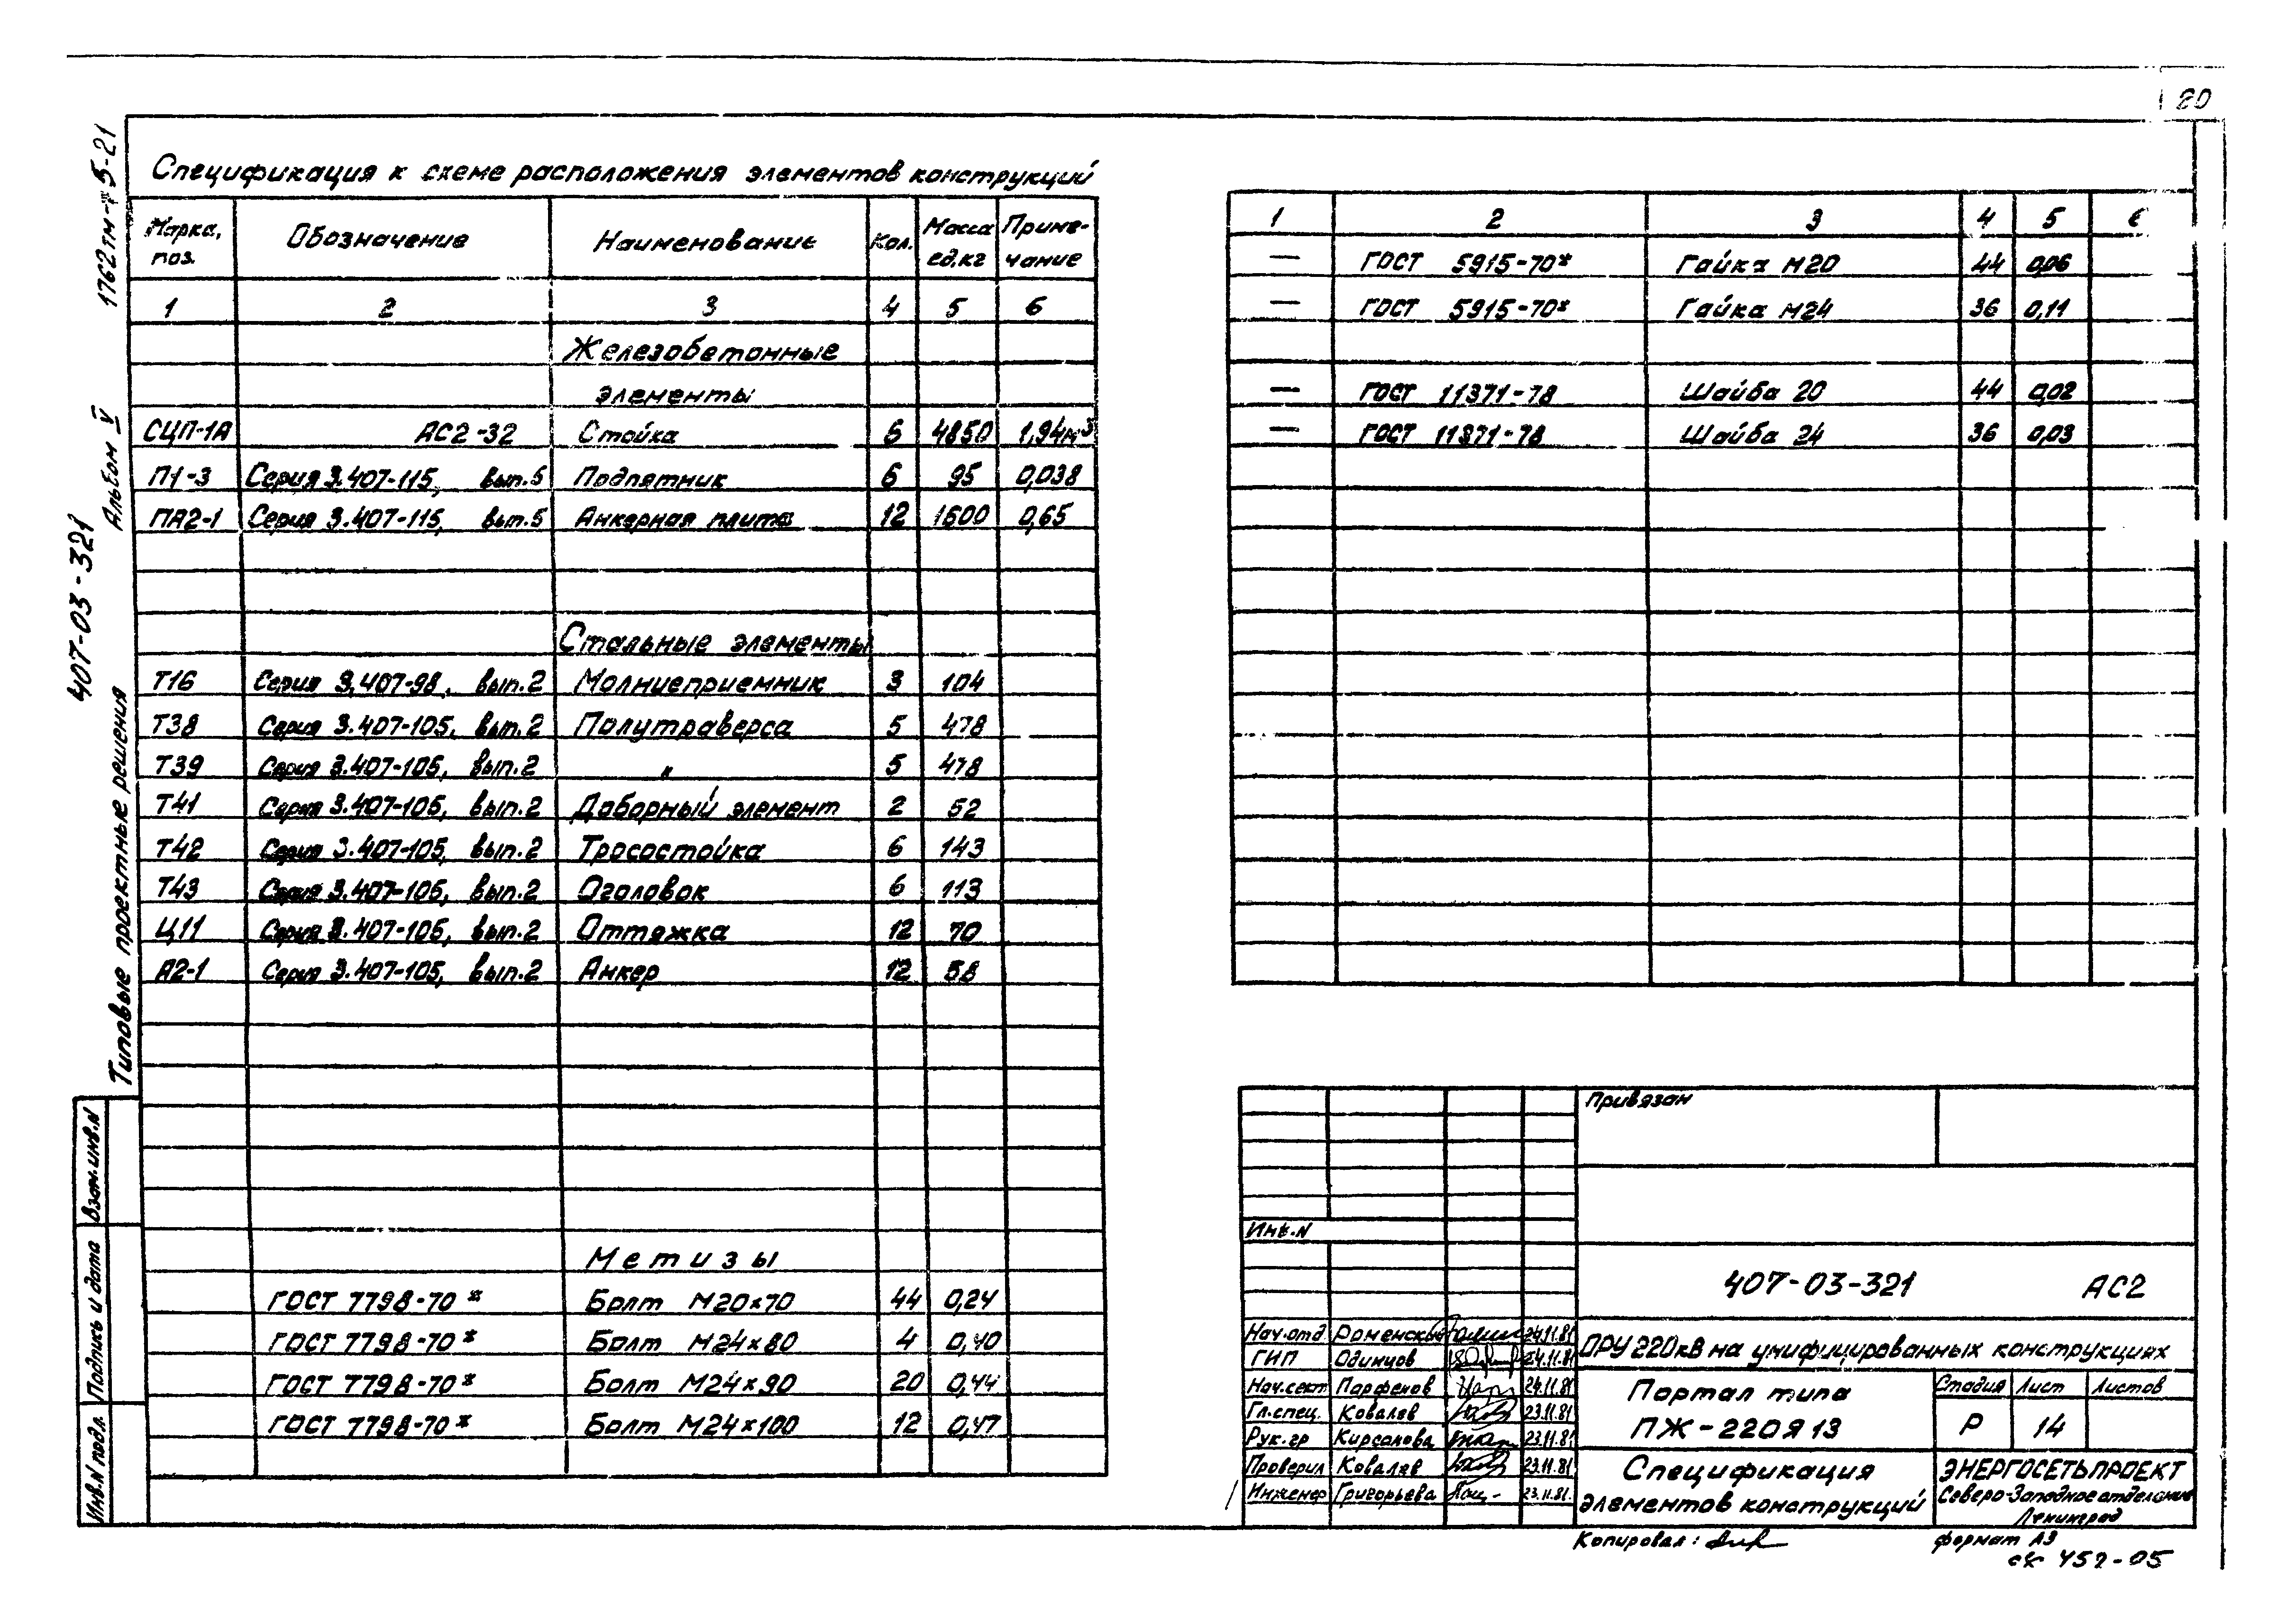 20
1762тм-т5-21
Альбом V
407-03-321
Типовые проектные решения
Взам.инв.N
Подпись и дата
Инв.N подл.
Спецификация к схеме расположения элементов конструкций
Марка, поз. Обозначение Наименование Кол. Масса ед,кг Приме-чание
1 2 3 4 5 6
Железобетонные
элементы
СЦП-1А АС2-32 Стойка 6 4850 1,94м3
П1-3 Серия 3.407-115, вып.5 Подпятник 6 95 0,038
ПА2-1 Серия 3.407-115, вып.5 Анкерная плита 12 1600 0,65
Стальные элементы
Т16 Серия 3.407-98, вып.2 Молниеприемник 3 104
Т38 Серия 3.407-105, вып.2 Полутраверса 5 478
Т39 Серия 3.407-105, вып.2 " 5 478
Т41 Серия 3.407-105, вып.2 Доборный элемент 2 52
Т42 Серия 3.407-105, вып.2 Тросостойка 6 143
Т43 Серия 3.407-105, вып.2 Оголовок 6 113
Ц11 Серия 3.407-105, вып.2 Оттяжка 12 70
А2-1 Серия 3.407-105, вып.2 Анкер 12 58
Метизы
ГОСТ 7798-70* Болт М20х70 44 0,24
ГОСТ 7798-70* Болт М24х80 4 0,40
ГОСТ 7798-70* Болт М24х90 20 0,44
ГОСТ 7798-70* Болт М24х100 12 0,47
1 2 3 4 5 6
— ГОСТ 5915-70* Гайка М20 44 0,06
— ГОСТ 5915-70* Гайка М24 36 0,11
— ГОСТ 11371-78 Шайба 20 44 0,02
— ГОСТ 11371-78 Шайба 24 36 0,03
Привязан
Инв.N
407-03-321 АС2
Нач.отд Роменский 24.11.81
ГИП Одинцов 24.11.81
Нач.сект Парфенов 24.11.81
Гл.спец. Ковалев 23.11.81
Рук.гр Кирсанова 23.11.81
Проверил Ковалев 23.11.81
Инженер Григорьева 23.11.81.
ОРУ 220кВ на унифицированных конструкциях
Портал типа
ПЖ-220Я13
Стадия Лист Листов
Р 14
Спецификация
элементов конструкций
ЭНЕРГОСЕТЬПРОЕКТ
Северо-Западное отделение
Ленинград
Копировал:
формат А3
ск 452-05